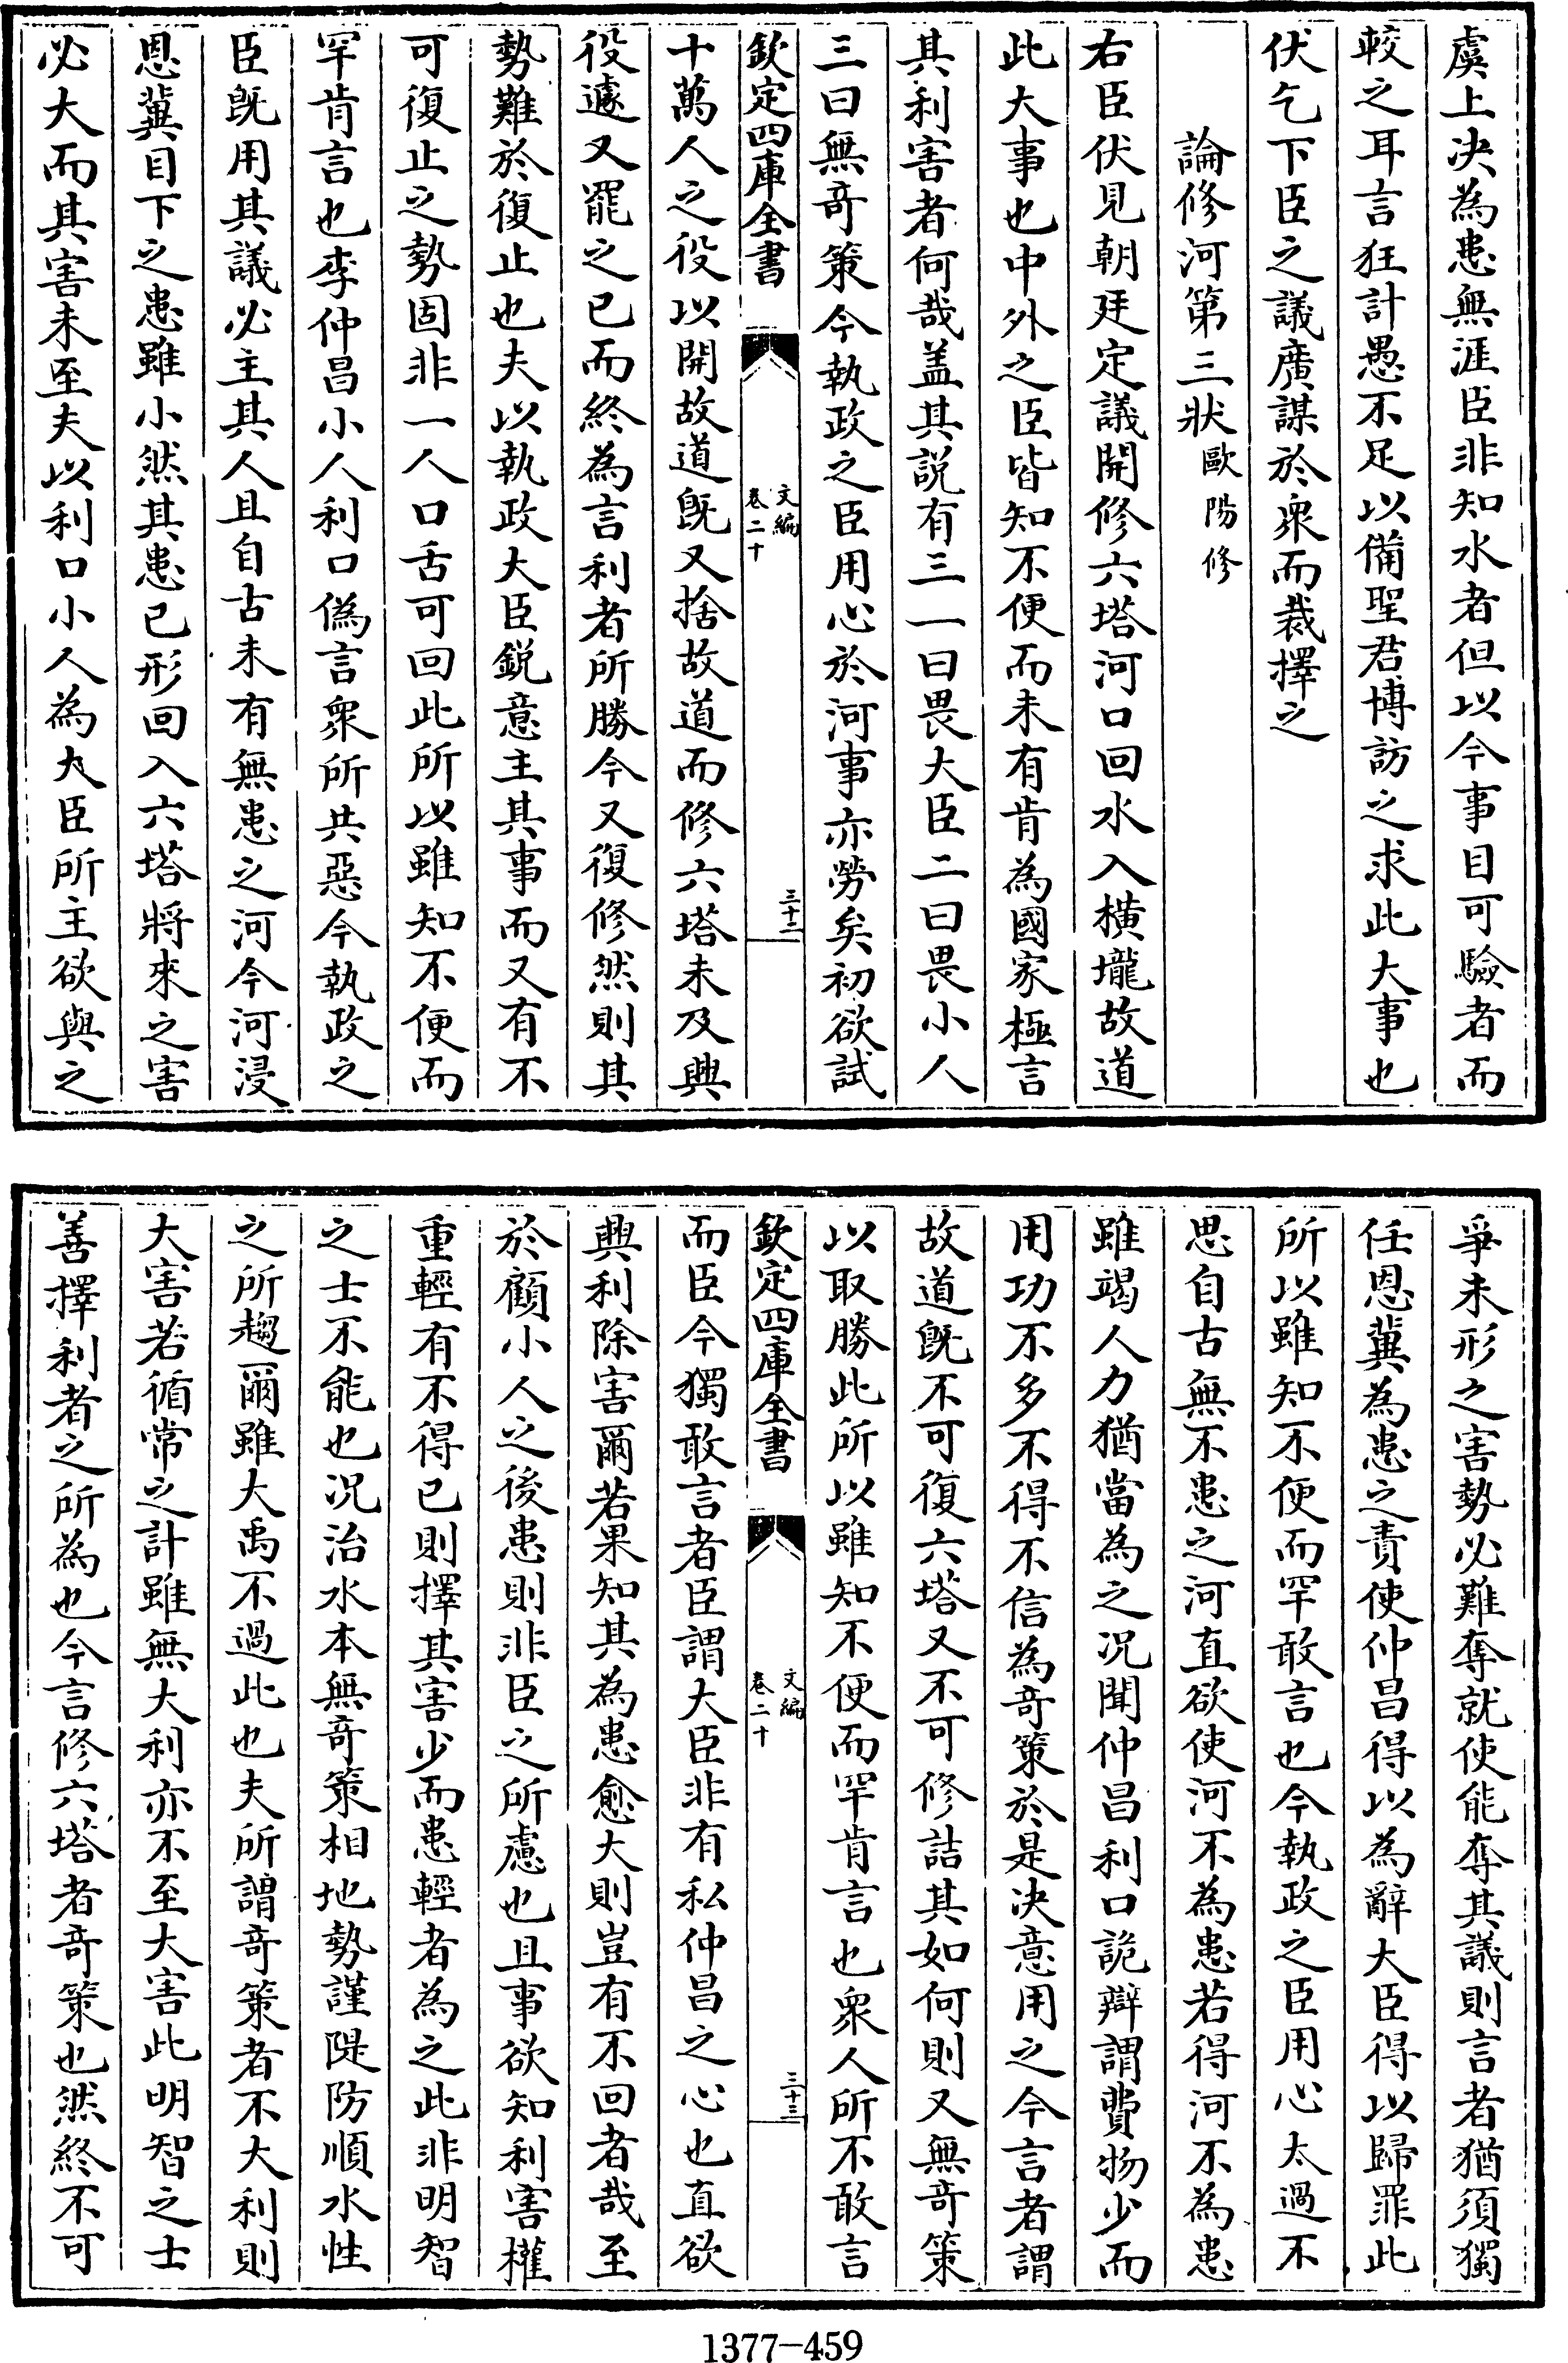 虞上决為患無涯臣非知水者但以今事目可驗者而
較之耳言狂計愚不足以備聖君博訪之求此大事也
伏乞下臣之議廣謀於衆而裁擇之
論修河第三狀歐陽修
右臣伏見朝廷定議開修六塔河口回水入橫壠故道
此大事也中外之臣皆知不便而未有肯為國家極言
其利害者何哉盖其説有三一曰畏大臣二曰畏小人
三曰無奇策今執政之臣用心於河事亦勞矣初欲試
欽定四庫全書
文編
卷二十
三十三
十萬人之役以開故道既又捨故道而修六塔未及興
役遽又罷之已而終為言利者所勝今又復修然則其
勢難於復止也夫以執政大臣鋭意主其事而又有不
可復止之勢固非一人口舌可回此所以雖知不便而
罕肯言也李仲昌小人利口偽言衆所共惡今執政之
臣既用其議必主其人且自古未有無患之河今河浸
恩冀目下之患雖小然其患已形回入六塔將來之害
必大而其害未至夫以利口小人為大臣所主欲與之
爭未形之害勢必難奪就使能奪其議則言者猶須獨
任恩冀為患之責使仲昌得以為辭大臣得以歸罪此
所以雖知不便而罕敢言也今執政之臣用心太過不
思自古無不患之河直欲使河不為患若得河不為患
雖竭人力猶當為之况聞仲昌利口詭辯謂費物少而
用功不多不得不信為奇策於是决意用之今言者謂
故道既不可復六塔又不可修詰其如何則又無奇策
以取勝此所以雖知不便而罕肯言也衆人所不敢言
欽定四庫全書
文編
卷二十
三十三
而臣今獨敢言者臣謂大臣非有私仲昌之心也直欲
興利除害爾若果知其為患愈大則豈有不回者哉至
於顧小人之後患則非臣之所慮也且事欲知利害權
重輕有不得已則擇其害少而患輕者為之此非明智
之士不能也况治水本無奇策相地勢謹隄防順水性
之所趨爾雖大禹不過此也夫所謂奇策者不大利則
大害若循常之計雖無大利亦不至大害此明智之士
善擇利者之所為也今言修六塔者奇策也然終不可
1377-459